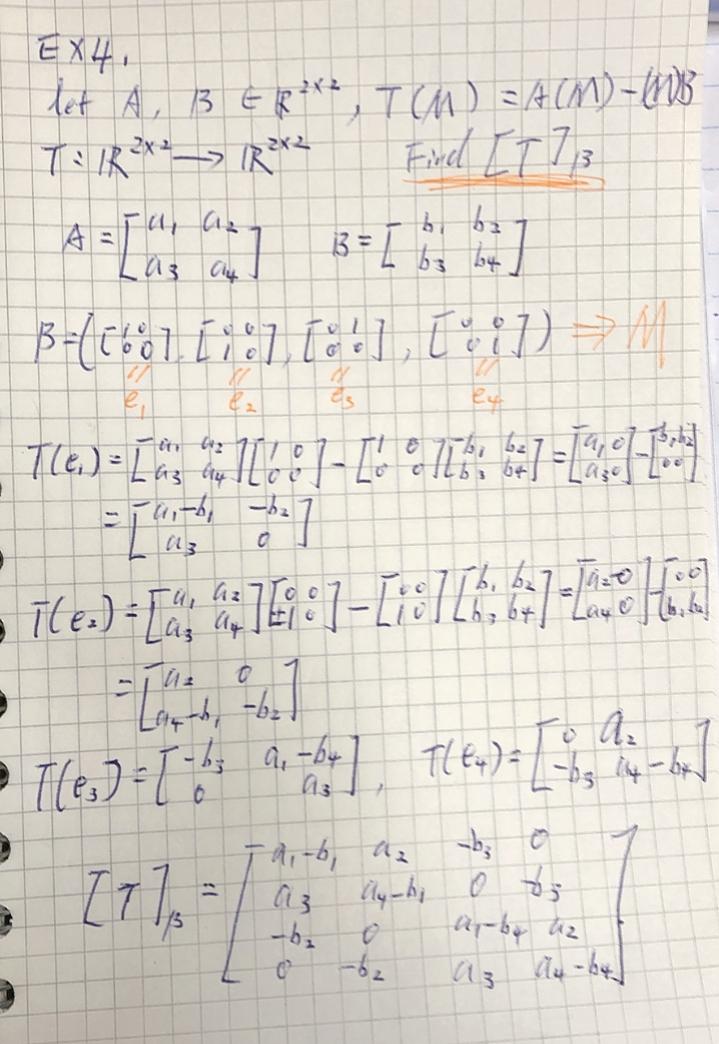 EX4.
let A, B ∈ ℝ^{2×2}, T(M) = A(M) - (M)B
T: ℝ^{2×2} → ℝ^{2×2} Find [T]_β
A = [a₁ a₂; a₃ a₄] B = [b₁ b₂; b₃ b₄]
β = ([1 0; 0 0], [0 0; 1 0], [0 1; 0 0], [0 0; 0 1]) ⇒ M
e₁ e₂ e₃ e₄
T(e₁) = [a₁ a₂; a₃ a₄][1 0; 0 0] - [1 0; 0 0][b₁ b₂; b₃ b₄] = [a₁ 0; a₃ 0] - [b₁ b₂; 0 0]
= [a₁-b₁ -b₂; a₃ 0]
T(e₂) = [a₁ a₂; a₃ a₄][0 0; 1 0] - [0 0; 1 0][b₁ b₂; b₃ b₄] = [a₂ 0; a₄ 0] - [0 0; b₁ b₂]
= [a₂ 0; a₄-b₁ -b₂]
T(e₃) = [-b₃ a₁-b₄; 0 a₃], T(e₄) = [0 a₂; -b₃ a₄-b₄]
[T]_β = [a₁-b₁ a₂ -b₃ 0; a₃ a₄-b₁ 0 -b₃; -b₂ 0 a₁-b₄ a₂; 0 -b₂ a₃ a₄-b₄]